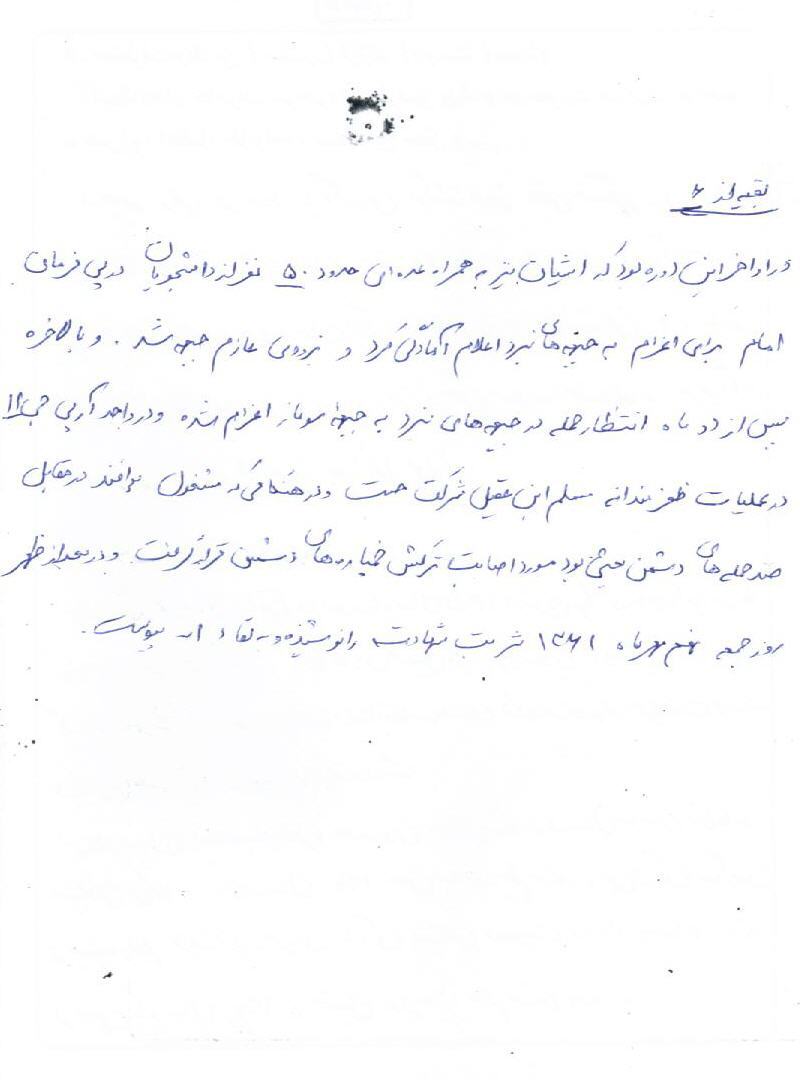 بقیه از ۲
در اواخر این دوره بود که ایشان نیز به همراه عده‌ای حدود ۵۰ نفر از دانشجویان در پی فرمان
امام برای اعزام به جبهه‌های نبرد اعلام آمادگی کرد و بزودی عازم جبهه شد. و بالاخره
پس از دو ماه انتظار حمله در جبهه‌های نبرد به جبهه سومار اعزام شده و در واحد آرپی جی ۱۱
در عملیات ظفرمندانه مسلم ابن عقیل شرکت جست و در هنگامی که مشغول پدافند در مقابل
ضد حمله‌های دشمن بعثی بود مورد اصابت ترکش خمپاره‌های دشمن قرار گرفت و در بعداز ظهر
روز جمعه نهم مهرماه ۱۳۶۱ شربت شهادت را نوشیده و به لقاء ا... پیوست.